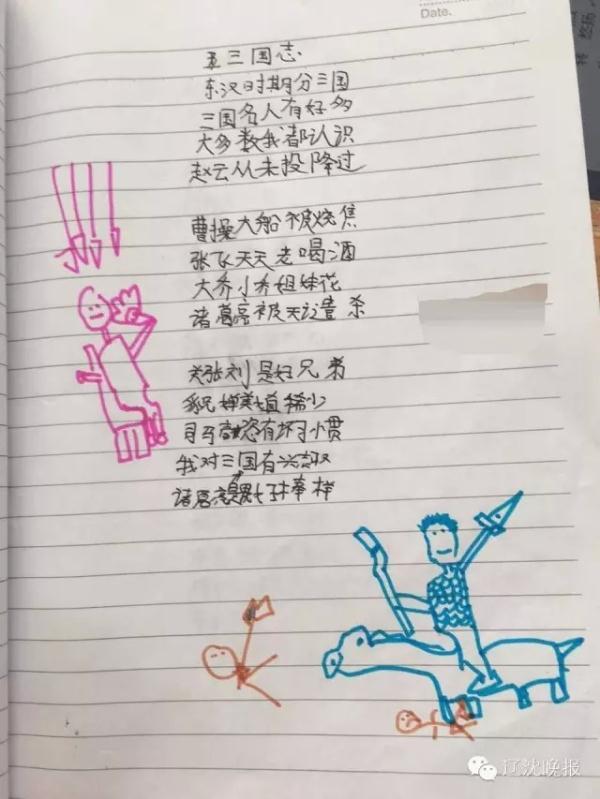 Date.
三国志
东汉时期分三国
三国名人有好多
大多数我都认识
赵云从未投降过
曹操大船被烧焦
张飞天天老喝酒
大乔小乔姐妹花
诸葛亮被天谴杀
关张刘是好兄弟
貂婵美道稀少
司马懿恣有坏习惯
我对三国有兴趣
诸葛亮是好榜样
辽沈晚报